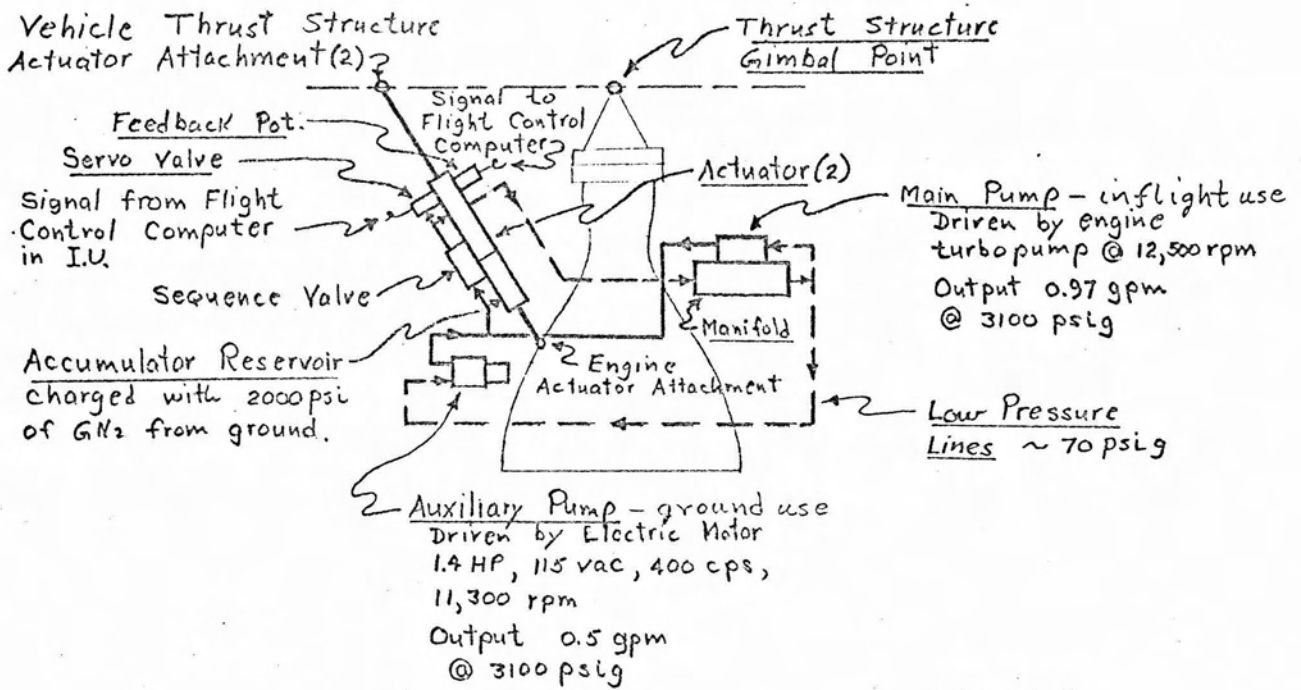 Vehicle Thrust Structure
Actuator Attachment(2)
Thrust Structure
Gimbal Point
Signal to
Flight Control
Computer
Feedback Pot.
Servo Valve
Signal from Flight
Control Computer
in I.U.
Actuator(2)
Main Pump - inflight use
Driven by engine
turbopump @ 12,500 rpm
Output 0.97 gpm
@ 3100 psig
Sequence Valve
Manifold
Accumulator Reservoir
charged with 2000 psi
of GN2 from ground.
Engine
Actuator Attachment
Low Pressure
Lines ~ 70 psig
Auxiliary Pump - ground use
Driven by Electric Motor
1.4 HP, 115 vac, 400 cps,
11,300 rpm
Output 0.5 gpm
@ 3100 psig